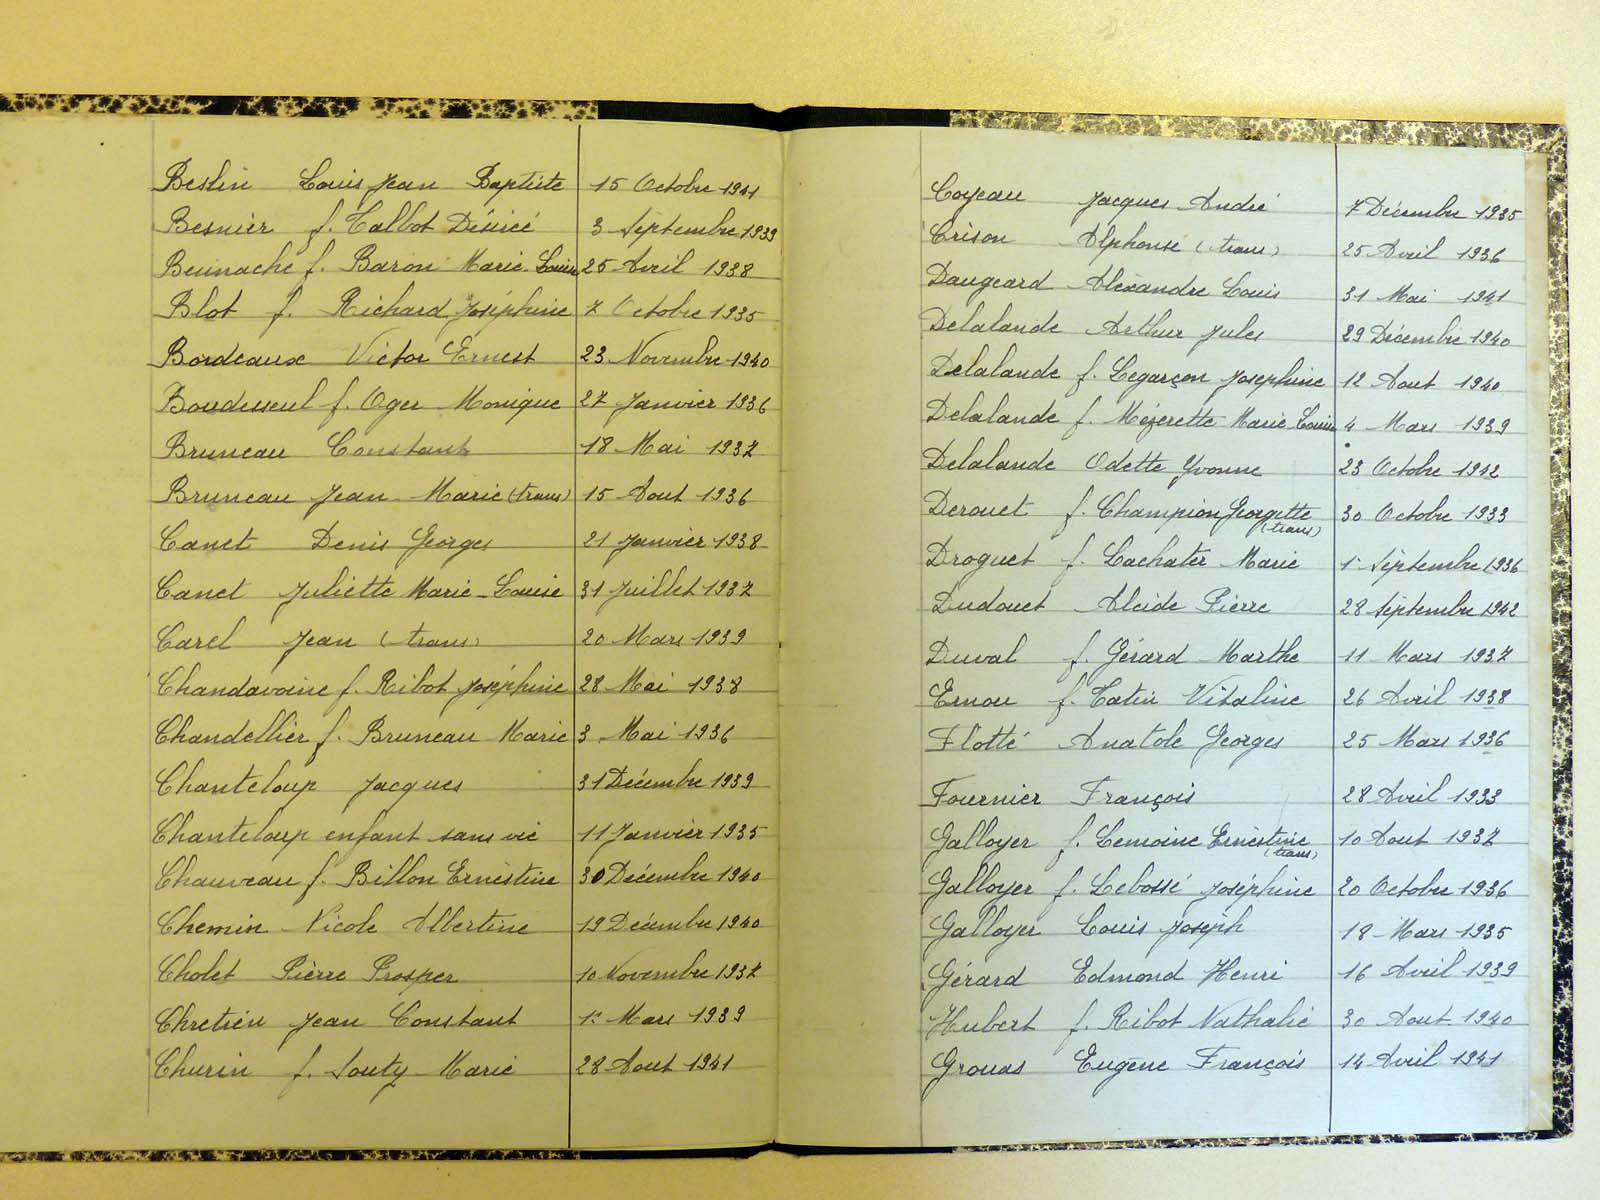 Beslin Louis Jean Baptiste 15 Octobre 1941
Besnier f. Talbot Désirée 3 Septembre 1939
Beunache f. Baron Marie Louise 25 Avril 1938
Blot f. Richard Joséphine 7 Octobre 1935
Bordeaux Victor Ernest 23 Novembre 1940
Boudesseul f. Oger Monique 27 Janvier 1936
Bruneau Constant 18 Mai 1937
Bruneau Jean Marie (trans) 15 Aout 1936
Canet Denis Georges 21 Janvier 1938
Canet Juliette Marie-Louise 31 Juillet 1937
Carel Jean (trans) 20 Mars 1939
Chandavoine f. Ribot Joséphine 28 Mai 1938
Chandellier f. Bruneau Marie 3 Mai 1936
Chanteloup Jacques 31 Décembre 1939
Chanteloup enfant sans vie 11 Janvier 1935
Chauveau f. Billon Ernestine 30 Décembre 1940
Chemin Nicole Albertine 19 Décembre 1940
Cholet Pierre Prosper 10 Novembre 1937
Chretien Jean Constant 1er Mars 1939
Churin f. Souty Marie 28 Aout 1941
Coyeau Jacques André 7 Décembre 1935
Crison Alphonse (trans) 25 Avril 1936
Daugeard Alexandre Louis 31 Mai 1941
Delalande Arthur Jules 29 Décembre 1940
Delalande f. Legarçon Josephine 12 Aout 1940
Delalande f. Mézerette Marie Louise 4 Mars 1939
Delalande Odette Yvonne 23 Octobre 1942
Derouet f. Champion Georgette (trans) 30 Octobre 1933
Droguet f. Lachater Marie 1er Septembre 1936
Dudouet Alcide Pierre 28 Septembre 1942
Duval f. Gérard Marthe 11 Mars 1937
Ernou f. Tatin Vitaline 26 Avril 1938
Flotté Anatole Georges 25 Mars 1936
Fournier François 28 Avril 1933
Galloyer f. Lemoine Ernestine (trans) 10 Aout 1937
Galloyer f. Lebossé Joséphine 20 Octobre 1936
Galloyer Louis Joseph 18 Mars 1935
Gérard Edmond Henri 16 Avril 1939
Hubert f. Ribot Nathalie 30 Aout 1940
Grouas Eugène François 14 Avril 1941